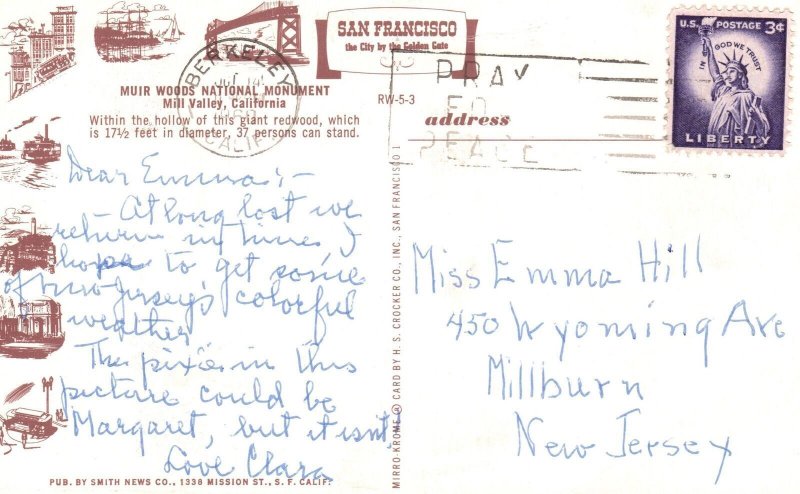 SAN FRANCISCO
the City by the Golden Gate
U.S. POSTAGE 3¢
IN GOD WE TRUST
LIBERTY
BERKELEY
CALIF.
PRAY
FOR
PEACE
MUIR WOODS NATIONAL MONUMENT
Mill Valley, California
RW-5-3
Within the hollow of this giant redwood, which
is 17½ feet in diameter, 37 persons can stand.
address
Dear Emma:-
- At long last we
return in time I
hope to get some
of New Jersey's colorful
weather
The pixie in this
picture could be
Margaret, but it isn't!
Love Clara
Miss Emma Hill
450 Wyoming Ave
Millburn
New Jersey
MIRRO-KROME ® CARD BY H. S. CROCKER CO., INC., SAN FRANCISCO 1
PUB. BY SMITH NEWS CO., 1338 MISSION ST., S. F. CALIF.